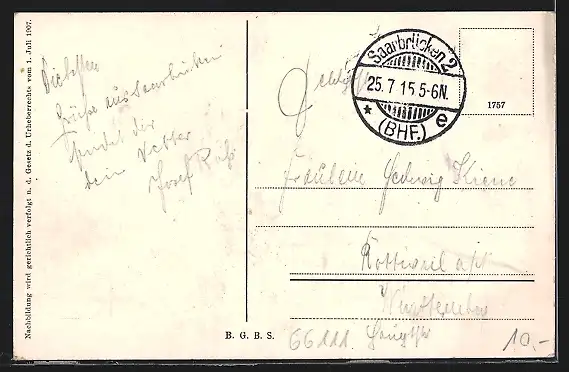 Nachbildung wird gerichtlich verfolgt n. d. Gesetz d. Urheberrechts vom 1. Juli 1907.
Die besten
Grüße aus Saarbrücken
sendet dir
dein Vetter
Josef
B. G. B. S.
Saarbrücken 2
25. 7 15 5-6N.
* (BHF.) e
1757
Fräulein Hedwig
Rottweil a/N
Württemberg
66111
10,-